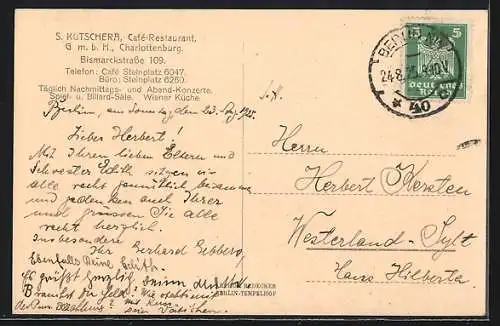 S. KUTSCHERA, Café-Restaurant,
G. m. b. H., Charlottenburg.
Bismarckstraße 109.
Telefon: Café Steinplatz 6047.
Büro: Steinplatz 6250.
Täglich Nachmittags- und Abend-Konzerte.
Spiel- u. Billard-Säle. Wiener Küche.
Berlin, am Sonntag, den 23. Aug. 1925.
Lieber Herbert!
Mit Ihren lieben Eltern und
Schwester Edith sitzen wir
alle recht gemütlich beisammen
und gedenken auch Ihrer
und grüssen Sie alle
recht herzlich.
Insbesondere
Ihr Gerhard
Ebenfalls Deine Edith.
Es grüßt
Brauchst Du Geld?
BERLIN-TEMPELHOF
BERLIN NW
24.8.25
40
5
Deutsches
Reich
Herrn
Herbert Kersten
Westerland-Sylt
Haus Hilberta